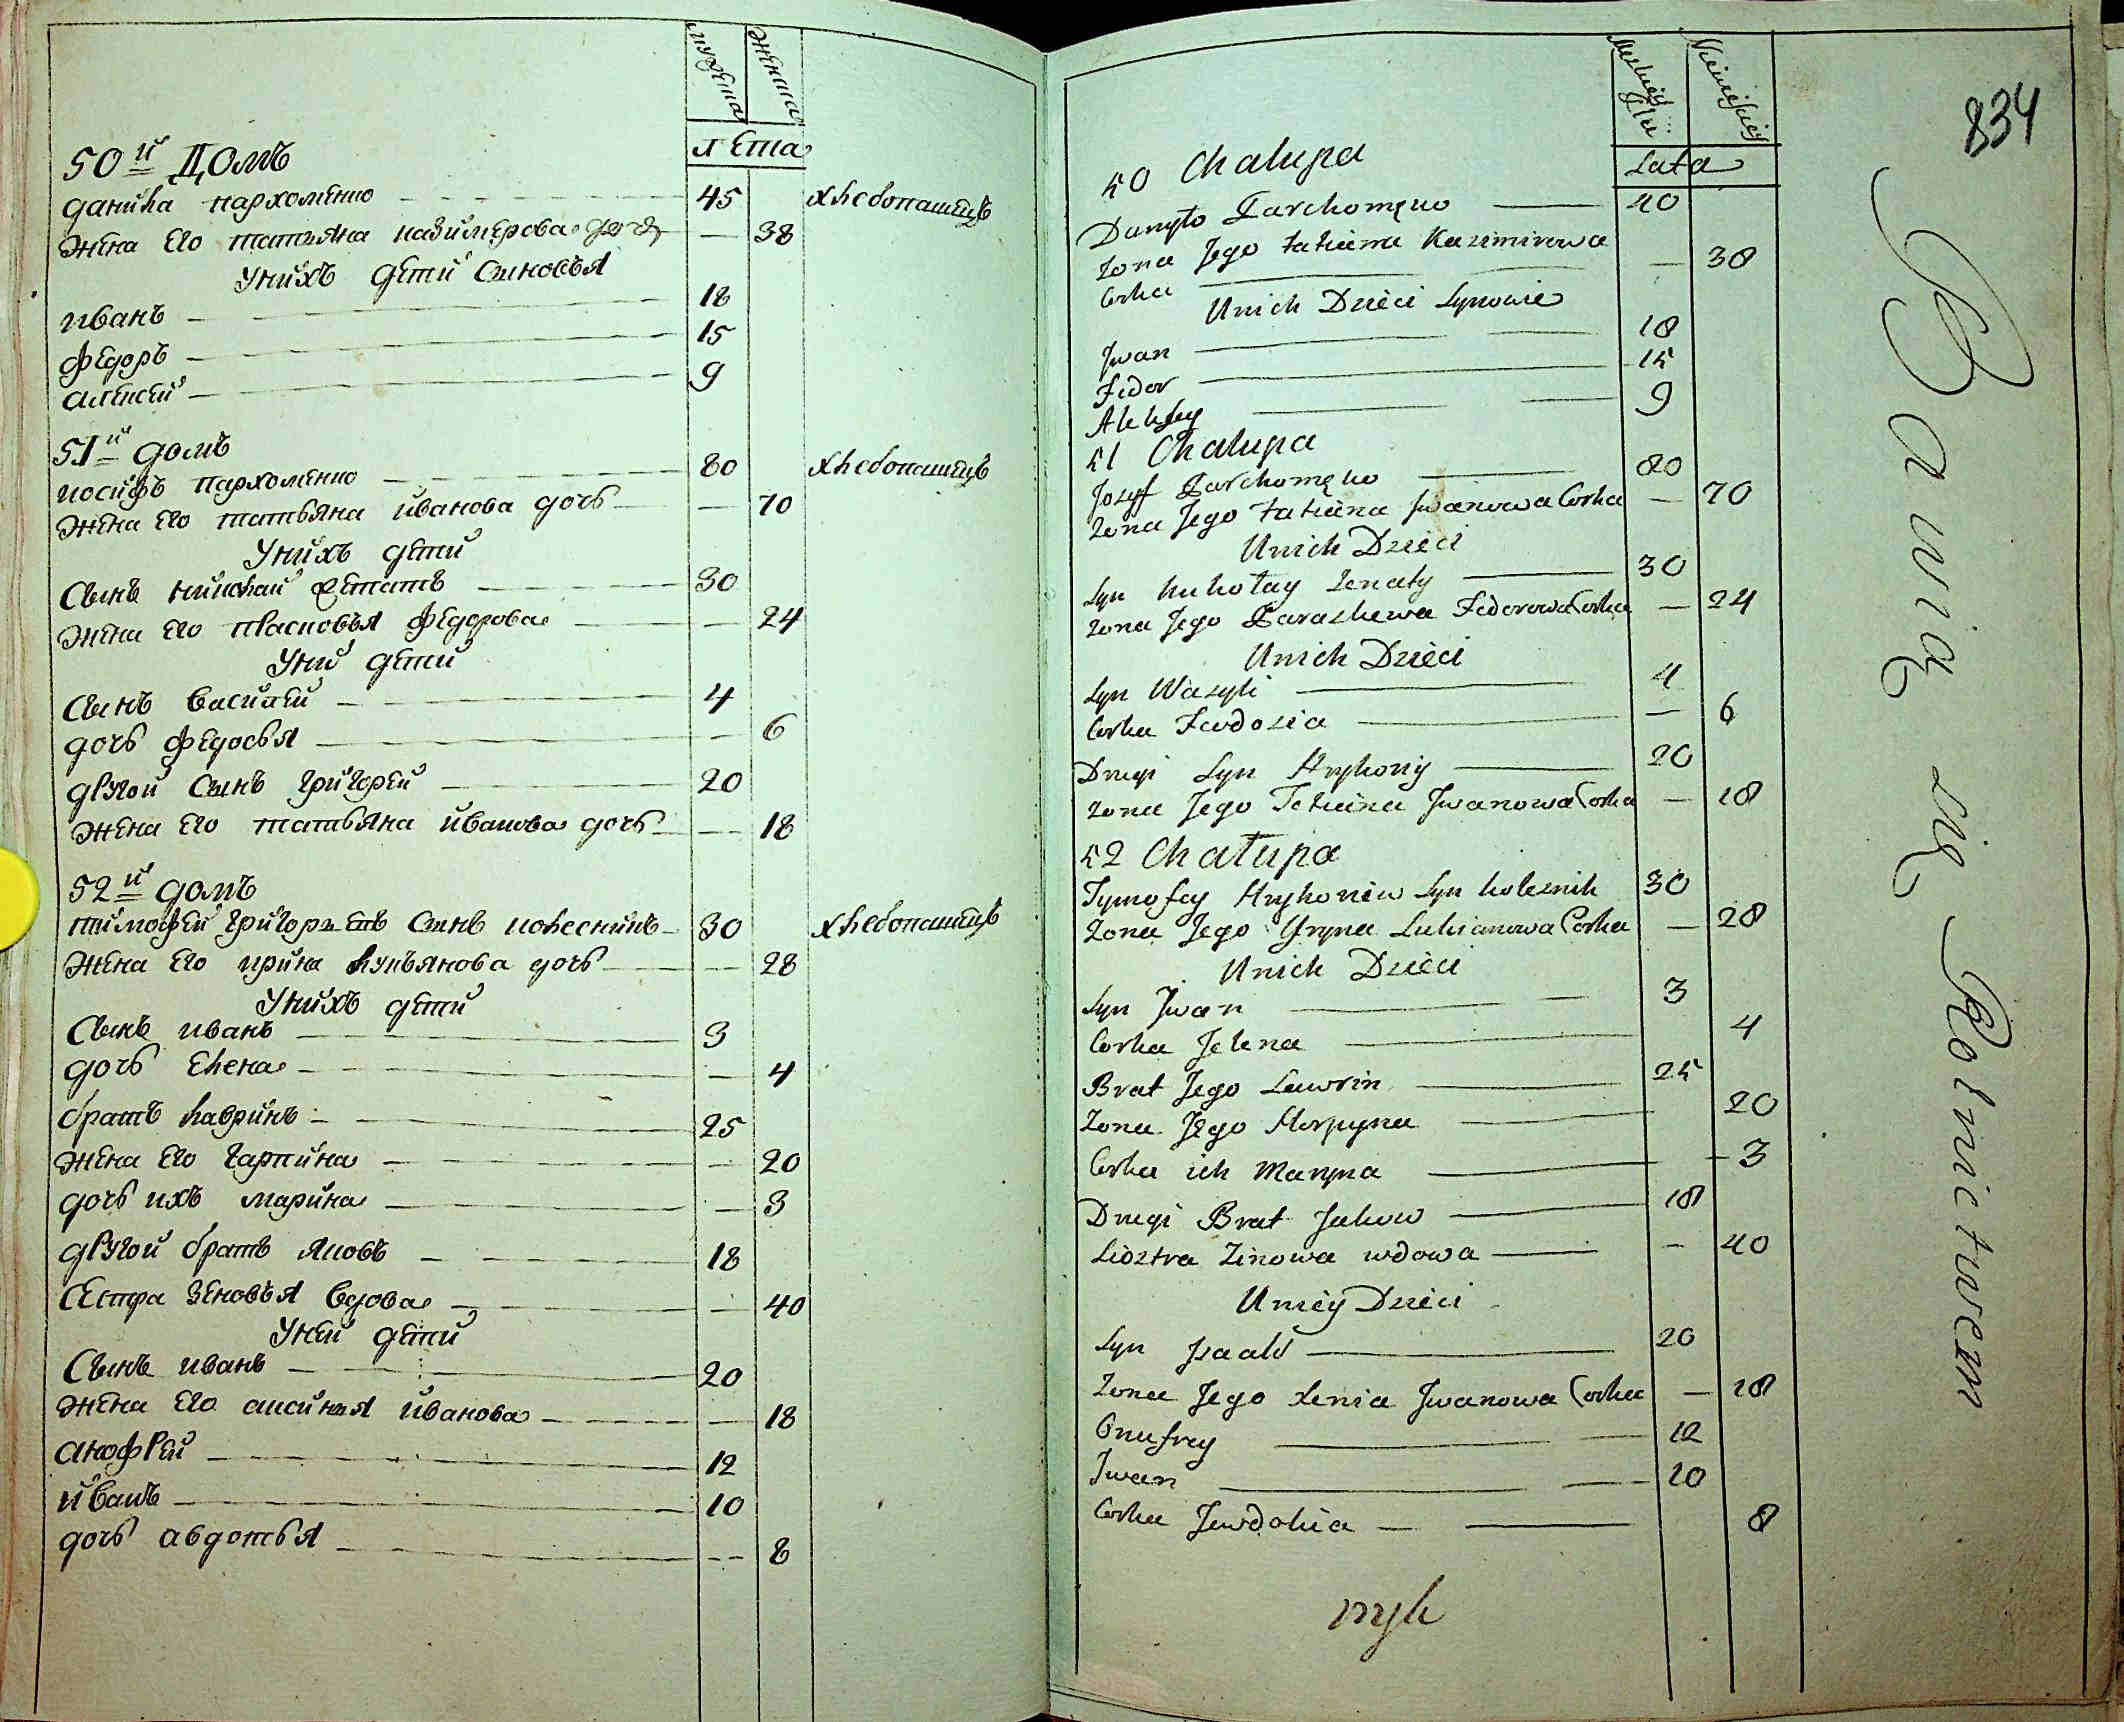 мужеска женска
лета
50й Домъ
данила пархоменко 45 хлебопашецъ
жена его татьяна казимерова дочь — 38
У нихъ дети Сыновья
иванъ 18
федоръ 15
алексей 9
51й домъ
иосифъ пархоменко 80 хлебопашецъ
жена его татьяна иванова дочь — 70
У нихъ дети
Сынъ николай женатъ 30
жена его прасковья федорова — 24
У ни дети
Сынъ василей 4
дочь федосья — 6
другой Сынъ григорей 20
жена его татьяна иванова дочь — 18
52й домъ
тимофей григорьевъ Сынъ колесникъ 30 хлебопашецъ
жена его ирина лукьянова дочь — 28
У нихъ дети
Сынъ иванъ 3
дочь елена — 4
братъ лавринъ 25
жена его гарпина — 20
дочь ихъ марина — 3
другой братъ яковъ 18
Сестра зеновья вдова — 40
У ней дети
Сынъ иванъ 20
жена его аксинья иванова — 18
анофрей 12
иванъ 10
дочь авдотья — 8
834
Lata
50 Chalupa
Danyło Parchomęko 40
Żona Jego Tatiana Kazimirowa
Corka — 38
U nich Dzieci Synowie
Jwan 18
Fedor 15
Aleksey 9
51 Chalupa
Jozyf Parchomęko 80
Żona Jego Tatiana Jwanowa Corka — 70
U nich Dzieci
Syn Mikołay Żenaty 30
Żona Jego Paraskewa Fedorowa Corka — 24
U nich Dzieci
Syn Wasyli 4
Corka Fewdosia — 6
Drugi Syn Hryhory 20
Żona Jego Tatiana Jwanowa Corka — 18
52 Chałupa
Tymofey Hryhoriew Syn Kolesnik 30
Żona Jego Yryna Lukianowa Corka — 28
U nich Dzieci
Syn Jwan 3
Corka Jelena 4
Brat Jego Lawrin 25
Żona Jego Horpyna 20
Corka ich Maryna — 3
Drugi Brat Jakow 18
Siostra Zinowa wdowa — 40
U niey Dzieci
Syn 20
Żona Jego Xenia Jwanowa Corka — 18
Onufrey 12
Jwan 10
Corka Jewdokia — 8
Bawią się Rolnictwem